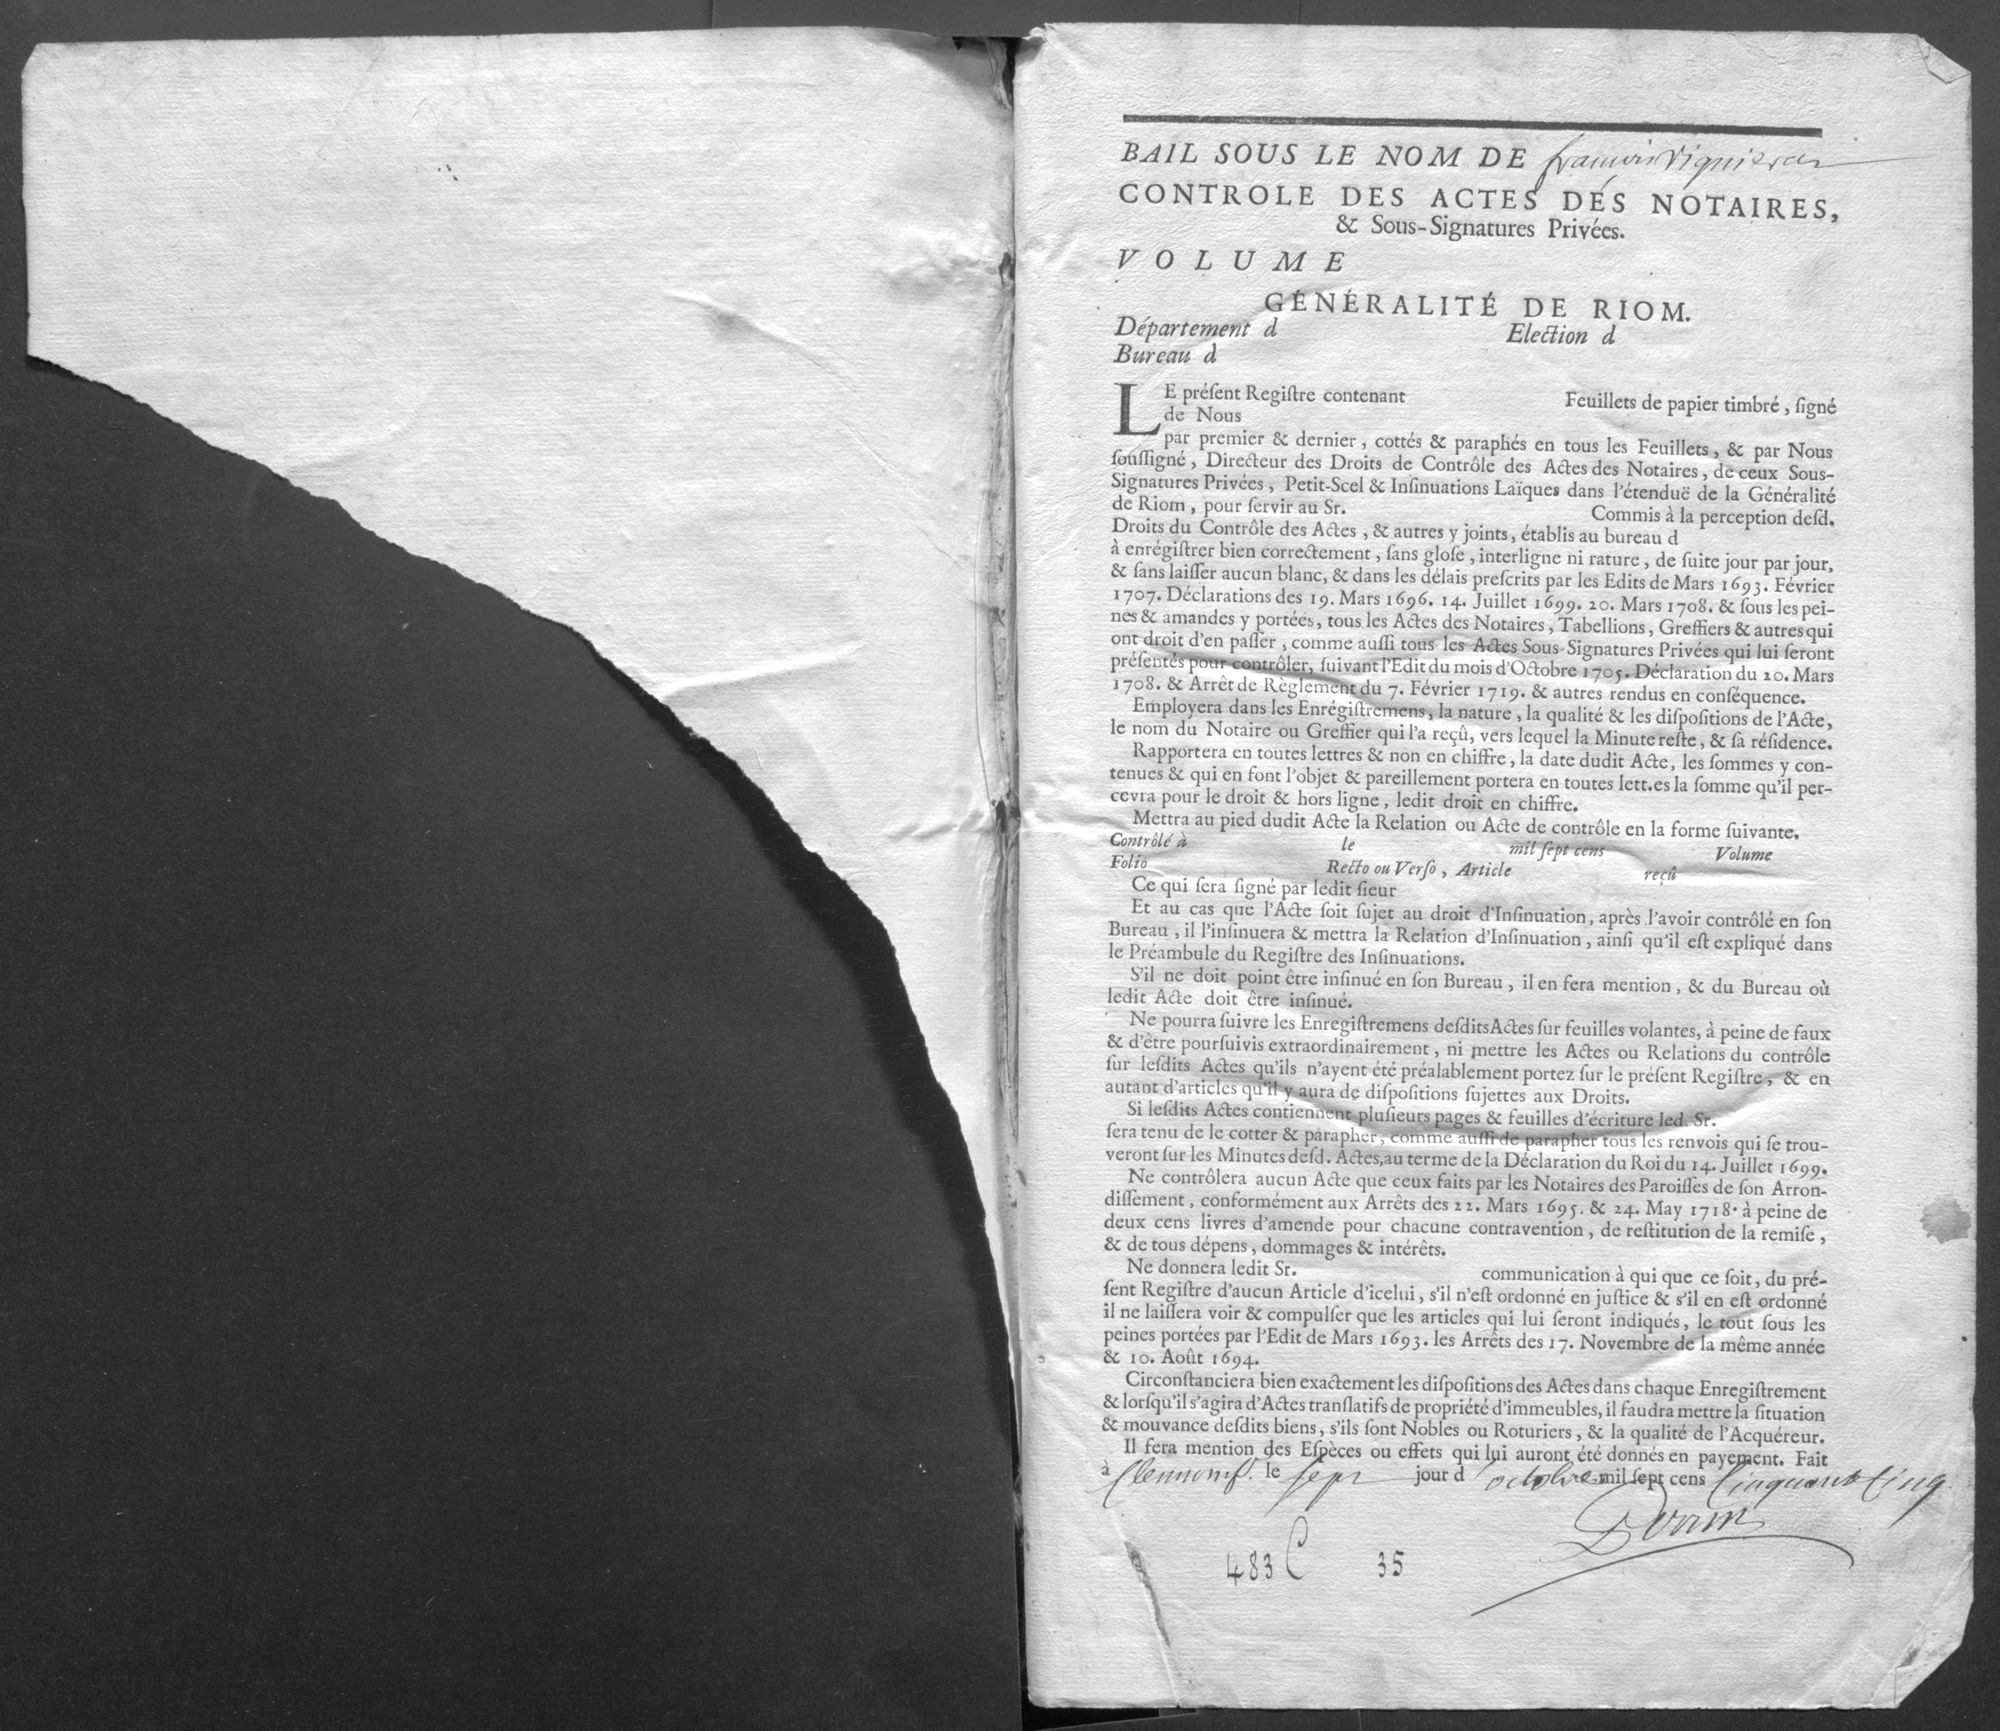 BAIL SOUS LE NOM DE françois Viguieras
CONTROLE DES ACTES DES NOTAIRES,
& Sous-Signatures Privées.
VOLUME
GÉNÉRALITÉ DE RIOM.
Département d Election d
Bureau d
LE préſent Regiſtre contenant Feuillets de papier timbré, ſigné
de Nous
par premier & dernier, cottés & paraphés en tous les Feuillets, & par Nous
ſouſſigné, Directeur des Droits de Contrôle des Actes des Notaires, de ceux Sous-
Signatures Privées, Petit-Scel & Inſinuations Laïques dans l'étenduë de la Généralité
de Riom, pour ſervir au Sr. Commis à la perception deſd.
Droits du Contrôle des Actes, & autres y joints, établis au bureau d
à enrégiſtrer bien correctement, ſans gloſe, interligne ni rature, de ſuite jour par jour,
& ſans laiſſer aucun blanc, & dans les délais preſcrits par les Edits de Mars 1693. Février
1707. Déclarations des 19. Mars 1696. 14. Juillet 1699. 20. Mars 1708. & ſous les pei-
nes & amandes y portées, tous les Actes des Notaires, Tabellions, Greffiers & autres qui
ont droit d'en paſſer, comme auſſi tous les Actes Sous-Signatures Privées qui lui ſeront
préſentés pour contrôler, ſuivant l'Edit du mois d'Octobre 1705. Déclaration du 20. Mars
1708. & Arrêt de Règlement du 7. Février 1719. & autres rendus en conſéquence.
Employera dans les Enrégiſtremens, la nature, la qualité & les diſpoſitions de l'Acte,
le nom du Notaire ou Greffier qui l'a reçû, vers lequel la Minute reſte, & ſa réſidence.
Rapportera en toutes lettres & non en chiffre, la date dudit Acte, les ſommes y con-
tenues & qui en font l'objet & pareillement portera en toutes lett.es la ſomme qu'il per-
cevra pour le droit & hors ligne, ledit droit en chiffre.
Mettra au pied dudit Acte la Relation ou Acte de contrôle en la forme ſuivante.
Contrôlé à le mil ſept cens Volume
Folio Recto ou Verſo, Article reçû
Ce qui ſera ſigné par ledit ſieur
Et au cas que l'Acte ſoit ſujet au droit d'Inſinuation, après l'avoir contrôlé en ſon
Bureau, il l'inſinuera & mettra la Relation d'Inſinuation, ainſi qu'il eſt expliqué dans
le Préambule du Regiſtre des Inſinuations.
S'il ne doit point être inſinué en ſon Bureau, il en fera mention, & du Bureau où
ledit Acte doit être inſinué.
Ne pourra ſuivre les Enregiſtremens deſdits Actes ſur feuilles volantes, à peine de faux
& d'être pourſuivis extraordinairement, ni mettre les Actes ou Relations du contrôle
ſur leſdits Actes qu'ils n'ayent été préalablement portez ſur le préſent Regiſtre, & en
autant d'articles qu'il y aura de diſpoſitions ſujettes aux Droits.
Si leſdits Actes contiennent pluſieurs pages & feuilles d'écriture led. Sr.
ſera tenu de le cotter & parapher, comme auſſi de parapher tous les renvois qui ſe trou-
veront ſur les Minutes deſd. Actes, au terme de la Déclaration du Roi du 14. Juillet 1699.
Ne contrôlera aucun Acte que ceux faits par les Notaires des Paroiſſes de ſon Arron-
diſſement, conformément aux Arrêts des 22. Mars 1695. & 24. May 1718. à peine de
deux cens livres d'amende pour chacune contravention, de reſtitution de la remiſe,
& de tous dépens, dommages & intérêts.
Ne donnera ledit Sr. communication à qui que ce ſoit, du pré-
ſent Regiſtre d'aucun Article d'icelui, s'il n'eſt ordonné en juſtice & s'il en eſt ordonné
il ne laiſſera voir & compulſer que les articles qui lui ſeront indiqués, le tout ſous les
peines portées par l'Edit de Mars 1693. les Arrêts des 17. Novembre de la même année
& 10. Août 1694.
Circonſtanciera bien exactement les diſpoſitions des Actes dans chaque Enregiſtrement
& lorſqu'il s'agira d'Actes tranſlatifs de propriété d'immeubles, il faudra mettre la ſituation
& mouvance deſdits biens, s'ils ſont Nobles ou Roturiers, & la qualité de l'Acquéreur.
Il fera mention des Eſpèces ou effets qui lui auront été donnés en payement. Fait
à Clermont le sept jour d octobre mil ſept cens Cinquante Cinq
483 C 35